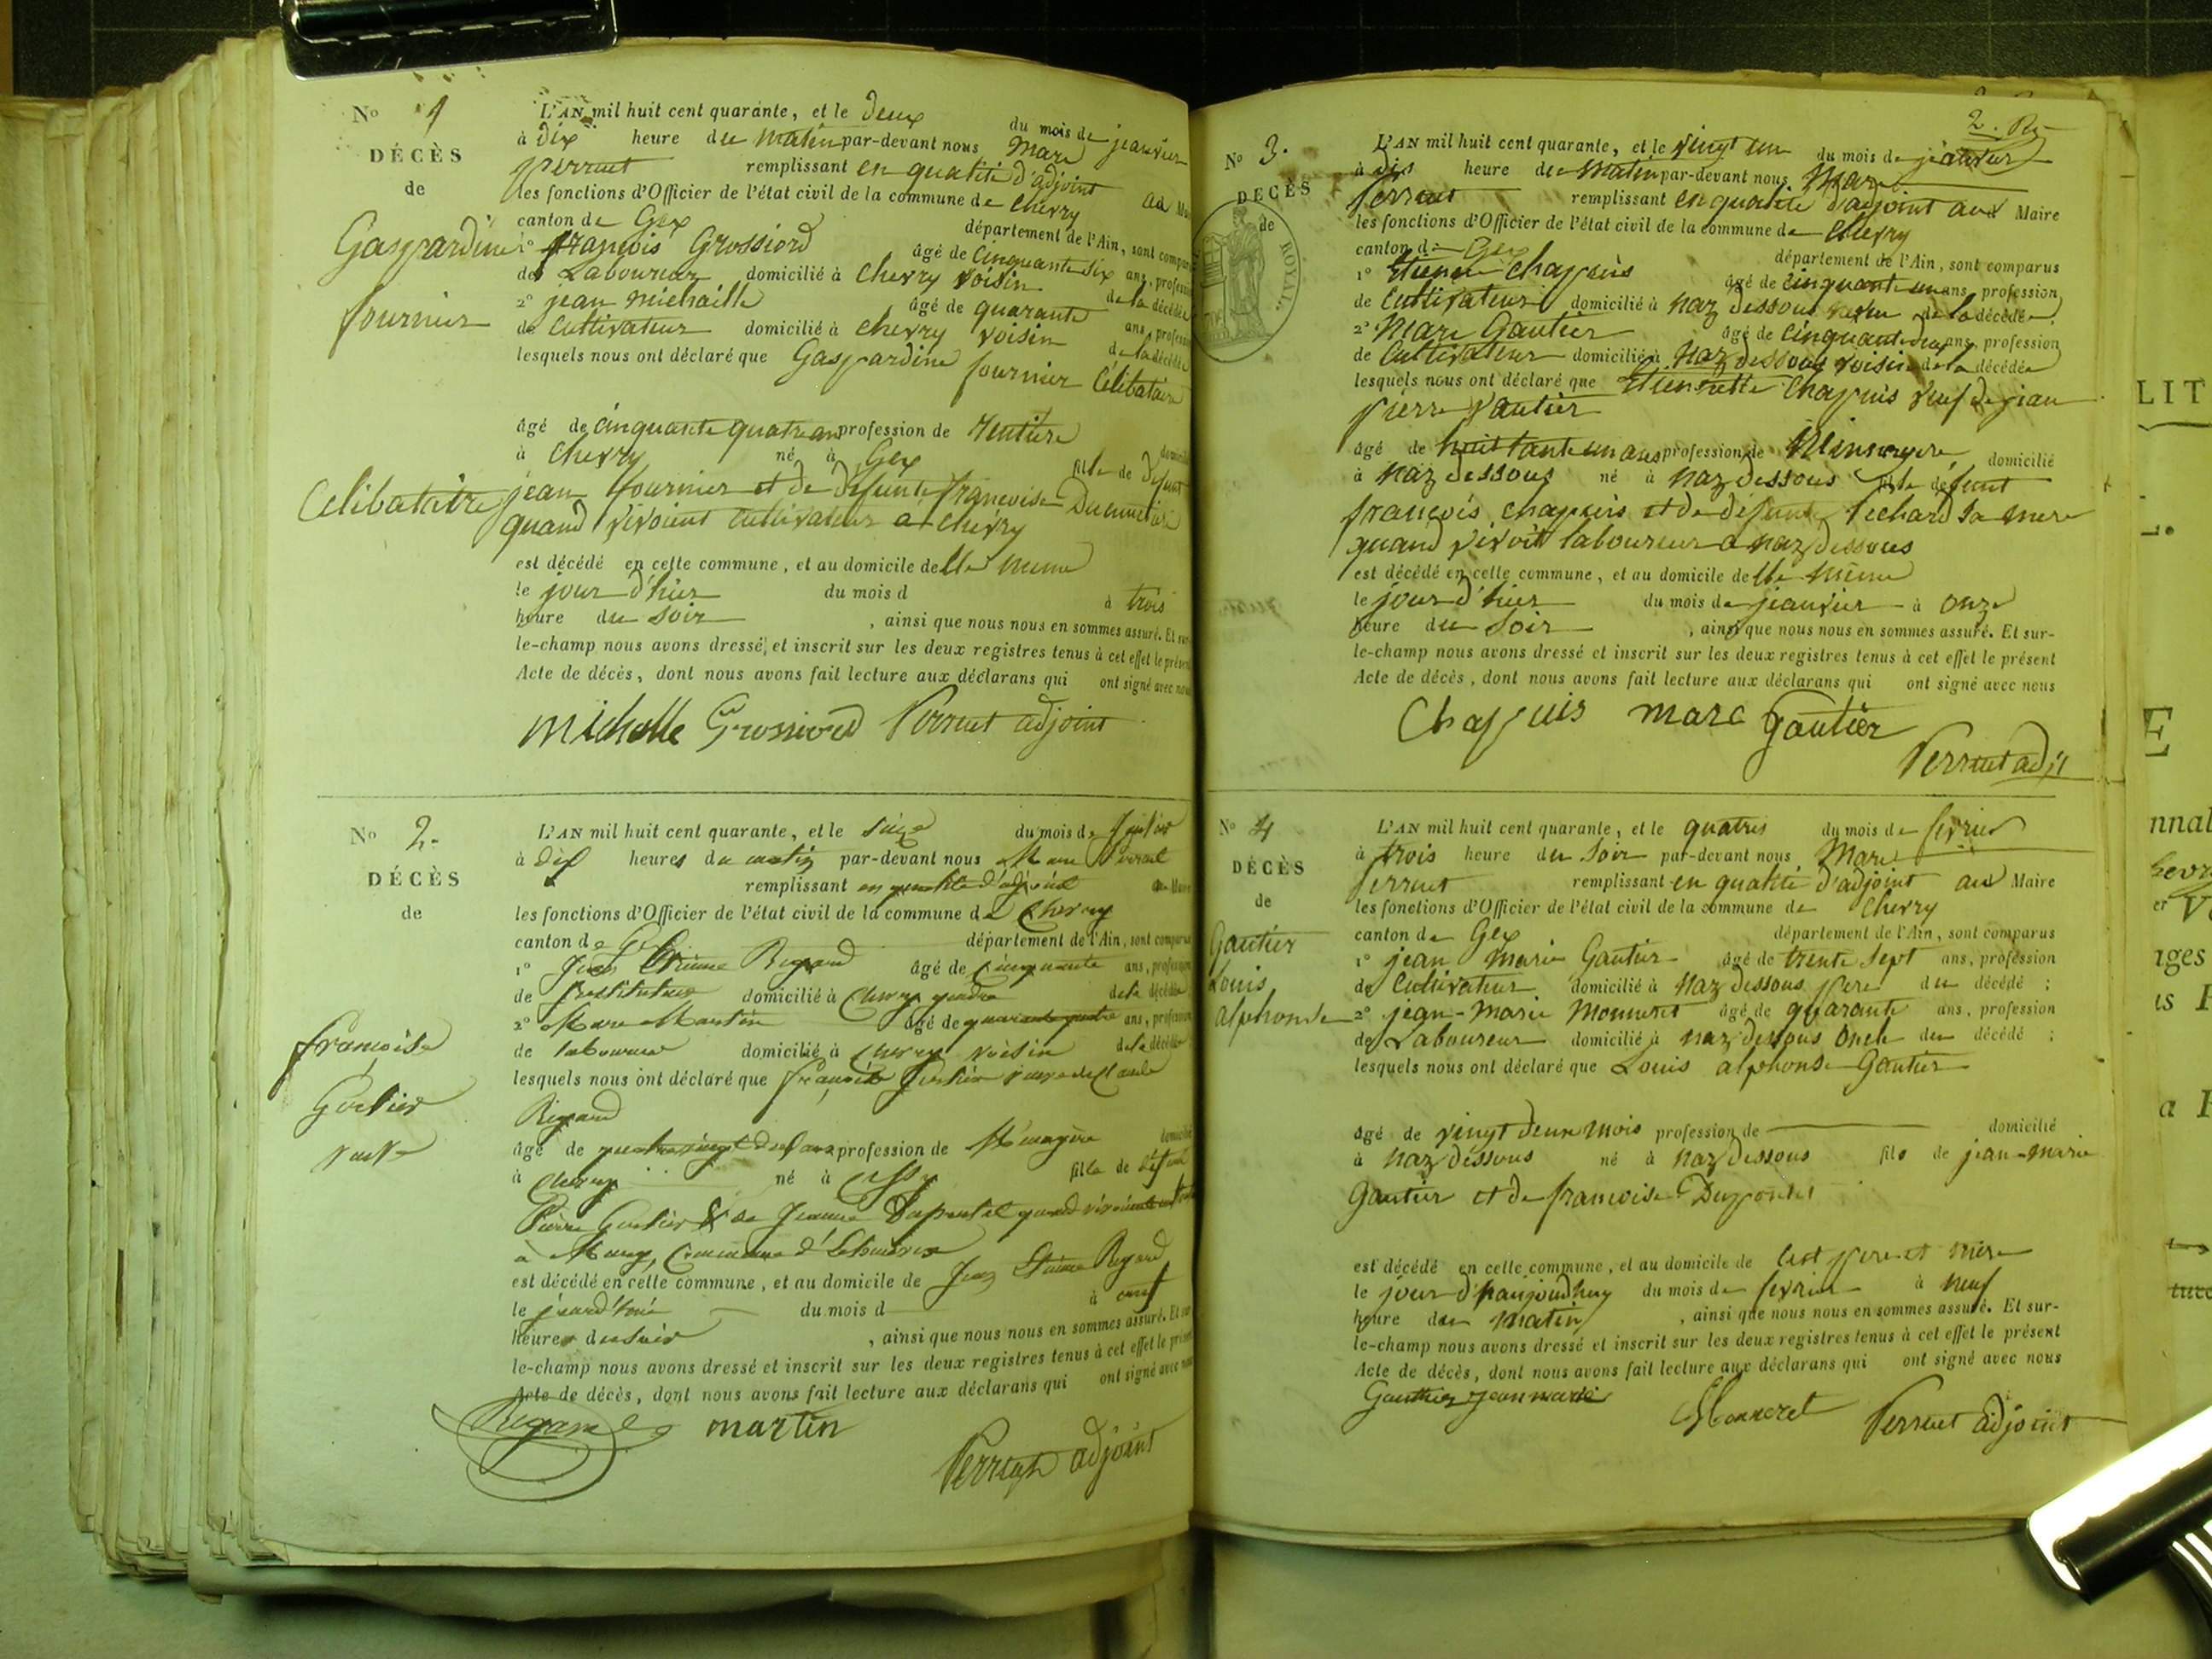 No 1
DÉCÈS
de
Gaspardine
fournier
Célibataire
L'AN mil huit cent quarante, et le deux du mois de janvier
à dix heure du matin par-devant nous Marc
Perruet remplissant en qualité d'adjoint au Mai
les fonctions d'Officier de l'état civil de la commune de chevry
canton de Gex département de l'Ain, sont compar
1° françois Grossiord âgé de cinquante six ans, profess
de Laboureur domicilié à chevry voisin de la décédée
2° jean michaille âgé de quarante ans, profess
de Cultivateur domicilié à chevry voisin de la décédée
lesquels nous ont déclaré que Gaspardine fournier Célibataire
âgé de cinquante quatre ans profession de rentière domicilié
à chevry né à Gex fille de défunt
jean fournier et de défunte françoise
quand vivoient cultivateur à chevry
est décédé en cette commune, et au domicile de lle meme
le jour d'hier du mois d à trois
heure du soir , ainsi que nous nous en sommes assuré. Et sur-
le-champ nous avons dressé et inscrit sur les deux registres tenus à cet effet le présent
Acte de décès, dont nous avons fait lecture aux déclarans qui ont signé avec nous
michelle Grossiord Perruet adjoint
No 2.
DÉCÈS
de
françoise
Gortier
veuve
L'AN mil huit cent quarante, et le seize du mois de Janvier
à dix heures du matin par-devant nous Marc Perruet
remplissant en qualité d'adjoint au Maire
les fonctions d'Officier de l'état civil de la commune de Chevry
canton de Gex département de l'Ain, sont comparus
1° Jean Etienne Regard âgé de cinquante ans, profession
de Instituteur domicilié à Chevry gendre de la décédée
2° Marc Martin âgé de quarante quatre ans, profession
de laboureur domicilié à Chevry voisin de la décédée
lesquels nous ont déclaré que françoise Gortier veuve de Claude
Regard
âgé de quatre vingt deux ans profession de Ménagère domicilié
à Chevry né à Cessy fille de défunt
Pierre Gortier & de Jeanne Dupontel quand vivoient
à Mury, Commune d'Echenevex
est décédé en cette commune, et au domicile de Jean Etienne Regard
le jour d'hier du mois d à onze
heures du soir , ainsi que nous nous en sommes assuré. Et sur
le-champ nous avons dressé et inscrit sur les deux registres tenus à cet effet le présent
Acte de décès, dont nous avons fait lecture aux déclarans qui ont signé avec nous
Regard martin
Perruet adjoint
2.
No 3.
DÉCÈS
de
ROYAL.
L'AN mil huit cent quarante, et le vingt un du mois de janvier
à dix heure du matin par-devant nous Marc
Perruet remplissant en qualité d'adjoint au Maire
les fonctions d'Officier de l'état civil de la commune de Chevry
canton de Gex département de l'Ain, sont comparus
1° Etienne Chapuis âgé de cinquante un ans, profession
de Cultivateur domicilié à naz dessous neveu de la décédée
2° Marc Gautier âgé de cinquante deux ans, profession
de Cultivateur domicilié à Naz dessous voisin de la décédée
lesquels nous ont déclaré que Etiennette Chapuis veuf de jean
pierre Gautier
âgé de huittante un ans profession de Ménagère domicilié
à naz dessous né à naz dessous fille défunt
françois chapuis et de défunte Pechard sa mere
quand vivoit laboureur a naz dessous
est décédé en cette commune, et au domicile de lle même
le jour d'hier du mois de jeanvier à onze
heure du soir , ainsi que nous nous en sommes assuré. Et sur-
le-champ nous avons dressé et inscrit sur les deux registres tenus à cet effet le présent
Acte de décès, dont nous avons fait lecture aux déclarans qui ont signé avec nous
Chapuis marc Gautier
Perruet adjt
No 4
DÉCÈS
de
Gautier
Louis
alphonse
L'AN mil huit cent quarante, et le quatre du mois de fevrier
à trois heure du soir par-devant nous Marc
Perruet remplissant en qualité d'adjoint au Maire
les fonctions d'Officier de l'état civil de la commune de Chevry
canton de Gex département de l'Ain, sont comparus
1° jean Marie Gautier âgé de trente sept ans, profession
de Cultivateur domicilié à naz dessous pere du décédé ;
2° jean-Marie Monneret âgé de quarante ans, profession
de Laboureur domicilié à naz dessous oncle du décédé ;
lesquels nous ont déclaré que Louis alphonse Gautier
âgé de vingt deux mois profession de domicilié
à naz dessous né à naz dessous fils de jean-marie
Gautier et de françoise Dupontel
est décédé en cette commune, et au domicile de pere et mere
le jour d'haujourdhuy du mois de fevrier à neuf
heure du matin , ainsi que nous nous en sommes assuré. Et sur-
le-champ nous avons dressé et inscrit sur les deux registres tenus à cet effet le présent
Acte de décès, dont nous avons fait lecture aux déclarans qui ont signé avec nous
Gauthier jean marie Monneret Perruet adjoint